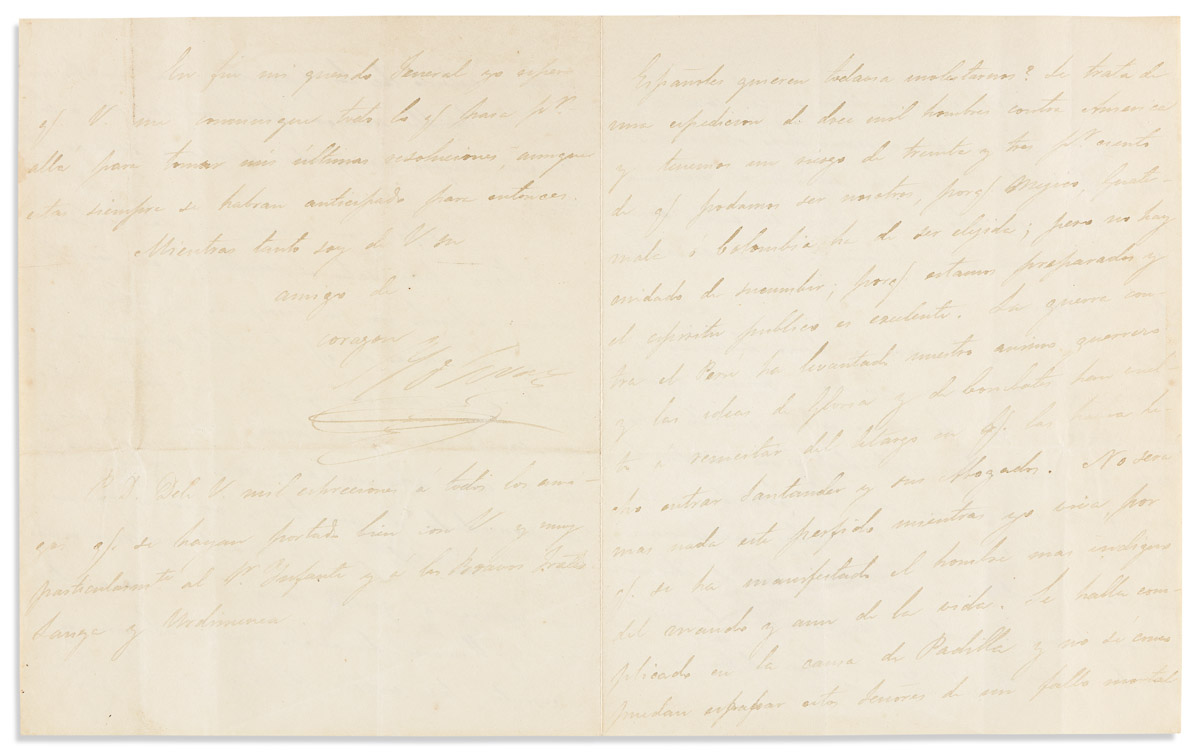 En fin mi querido General yo espero
q/ V. me comunique todo lo q/ pasa pr.
allá para tomar mis últimas resoluciones, aunque
estas siempre se habran anticipado para entonces.
Mientras tanto soy de V. su
amigo de
corazon
Bolivar
P. D. Dele V. mil espreciones a todos los ami-
gos q/. se hayan portado bien con V. y muy
particularmte. al Sr. Infante y á los
Lanza y Urdininea
Españoles quieren todavia molestarnos? Se trata de
una espedicion de doce mil hombres contra America
y tenemos un riesgo de treinta y tres pr. ciento
de q/ podamos ser nosotros, porq/. Mejico, Guate-
mala ó Colombia ha de ser elejida; pero no hay
cuidado de sucumbir; porq/ estamos preparados y
el espiritu publico es exelente. La guerra con-
tra el Peru ha levantado nuestro animo guerrero
y las ideas de gloria y de combate han
á del letargo en q/. los havia he-
cho entrar Santander y sus Abogados. No será
mas nada este perfido mientras yo viva, por
q/. se ha manifestado el hombre mas indigno
del mando y aun de la vida. Se halla com-
plicado en la causa de Padilla y no sé como
puedan escapar estos Señores de un fallo mortal